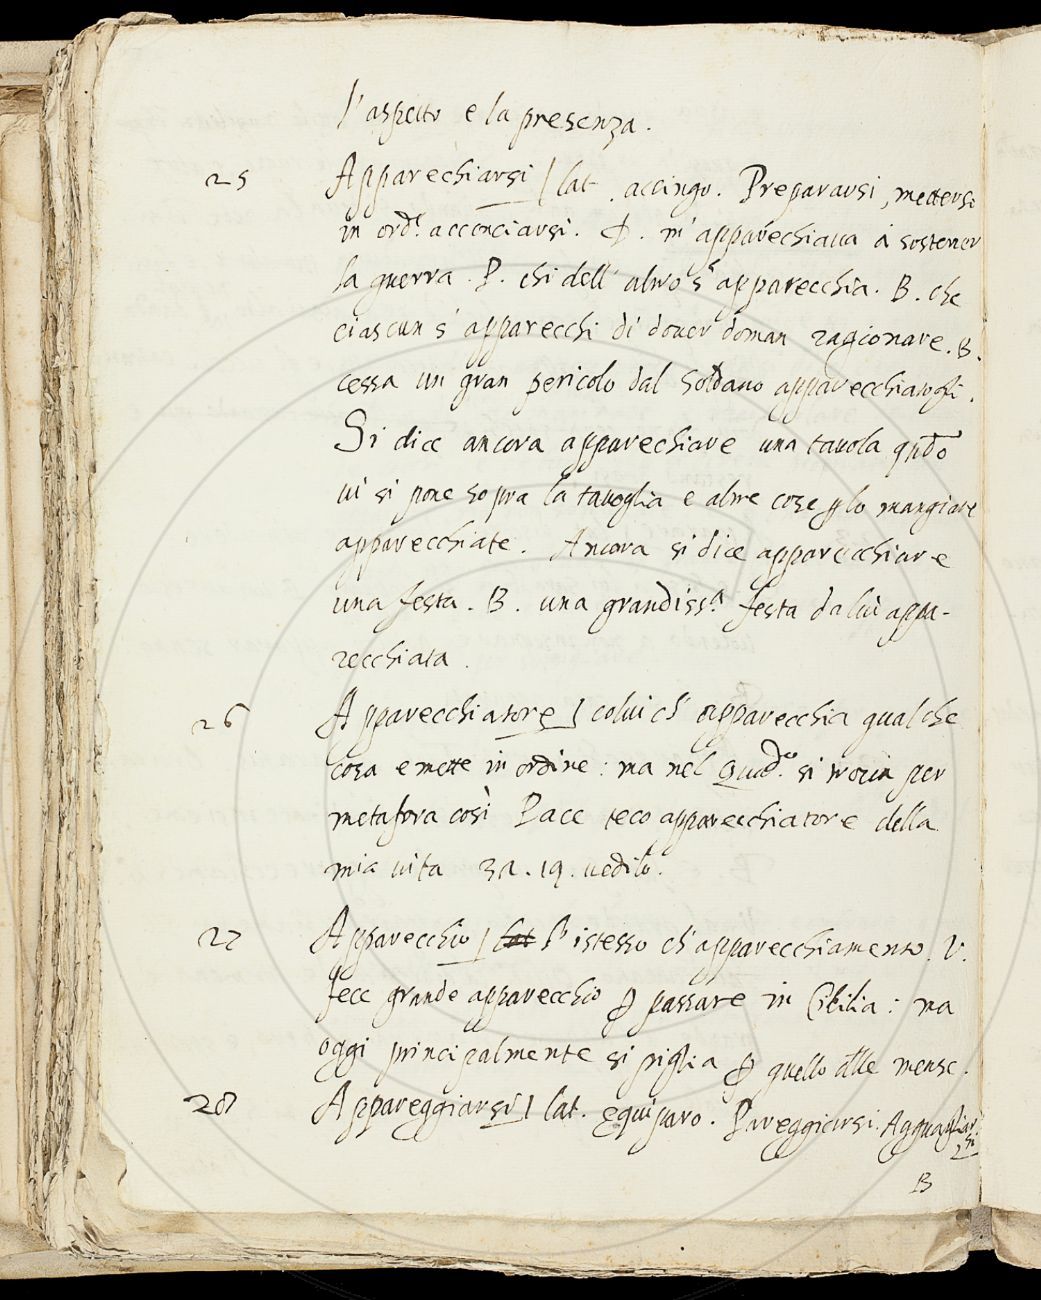 l'aspetto e la presenza.
25 Apparechiarsi / lat. accingo. Prepararsi, mettersi
in ord.e acconciarsi. D. m'apparechiaua à sostener
la guerra. P. chi dell' altro s' apparecchia. B. che
ciascun s' apparecchi di douer doman ragionare. B.
cessa un gran pericolo dal Soldano apparecchiatogli.
Si dice ancora apparechiare una tauola qñdo
ui si pone sopra la touaglia e altre cose ꝑ lo mangiare
apparecchiate. Ancora si dice apparecchiare
una festa. B. una grandiss.a festa da lui appa-
recchiata.
26 Apparecchiatore / colui ch' apparecchia qualche
cosa e mette in ordine: ma nel Quad.o si troua per
metafora così Pace teco apparecchiatore della
mia uita 3a. 19. uedilo.
27 Apparecchio / lat l' istesso ch' apparecchiamento. V.
fece grande apparecchio ꝑ passare in Cicilia: ma
oggi principalmente si piglia ꝑ quello alle mense.
28 Appareggiarsi / lat. equiparo. Pareggiarsi. Agguagliar
si
B